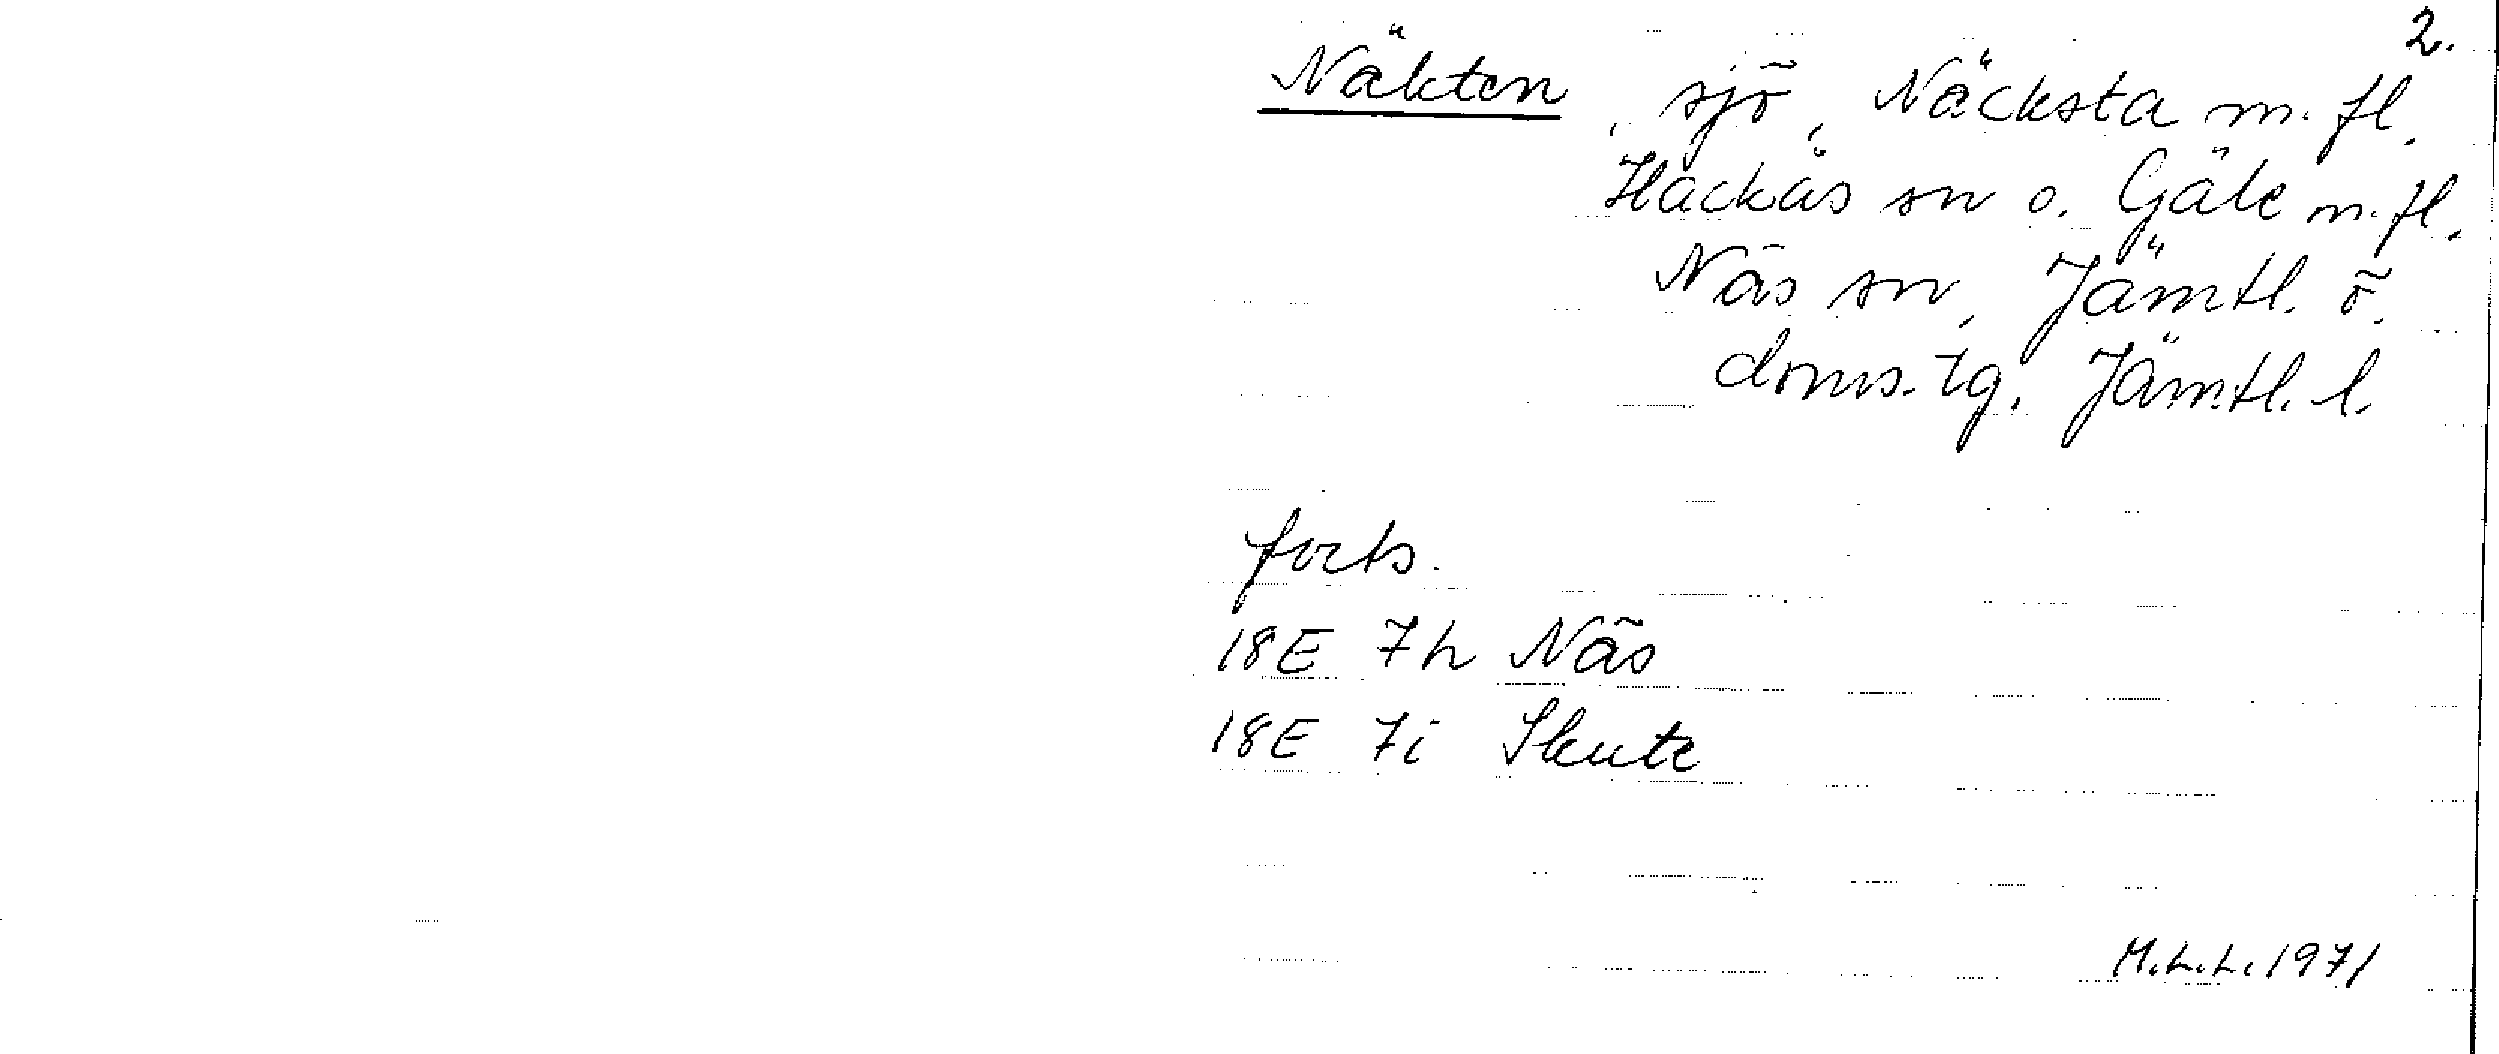 2.
Näkten, sjö, Näcksta m. fl.
Hackås sn o. Gäle m. fl.
Näs sn, Jämtl. ö.
doms. tg, Jämtl. l.
forts.
18E 7h Näs
18E 7i Skute
M.L.L. 1971